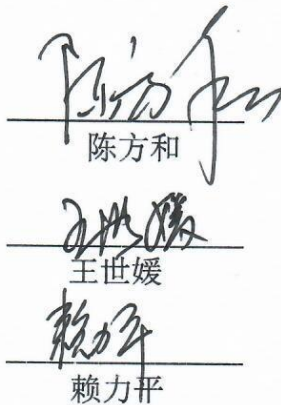 陈方和
陈方和
王世媛
王世媛
赖力平
赖力平